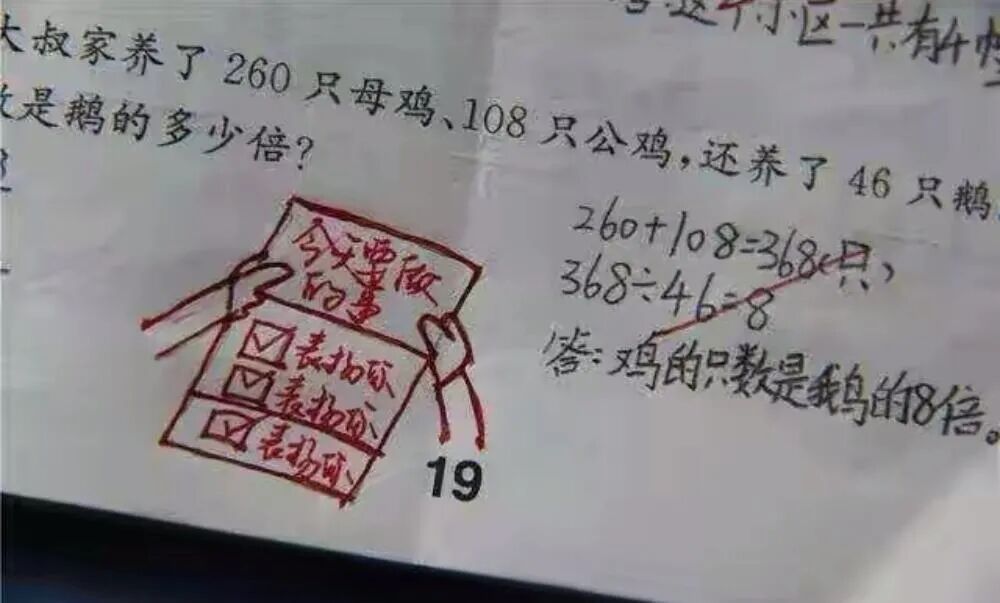 答:这个小区一共有4幢
大叔家养了260只母鸡、108只公鸡,还养了46只鹅
数是鹅的多少倍?
260+108=368(只)
368÷46=8
答:鸡的只数是鹅的8倍。
今天要做
的事
表扬你
表扬你
表扬你
19